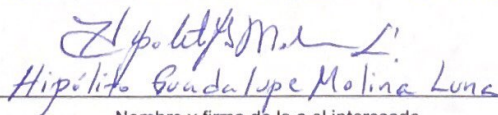 Hipólito Guadalupe Molina Luna
Nombre y firma de la o el interesado